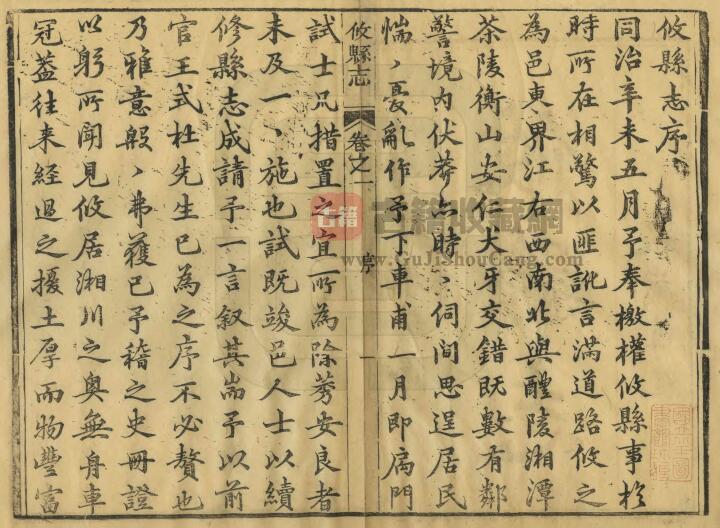 攸縣志序
同治辛未五月予奉檄權攸縣事於
時所在相驚以匪訛言滿道路攸之
為邑東界江右西南北與醴陵湘潭
茶陵衡山安仁犬牙交錯既數有鄰
警境內伏莽亦時〻伺間思逞居民
惴〻憂亂作予下車甫一月即扃門
攸縣志
卷之一
序
一
試士凡措置之宜所為除莠安良者
未及一〻施也試既竣邑人士以續
修縣志成請予一言叙其耑予以前
官王式杜先生已為之序不必贅也
乃雅意殷〻弗獲已予稽之史冊證
以躬所聞見攸居湘川之奧無身車
冠蓋往来經過之擾土厚而物豐富
古籍
古籍收藏網
www.GuJiShouCang.com